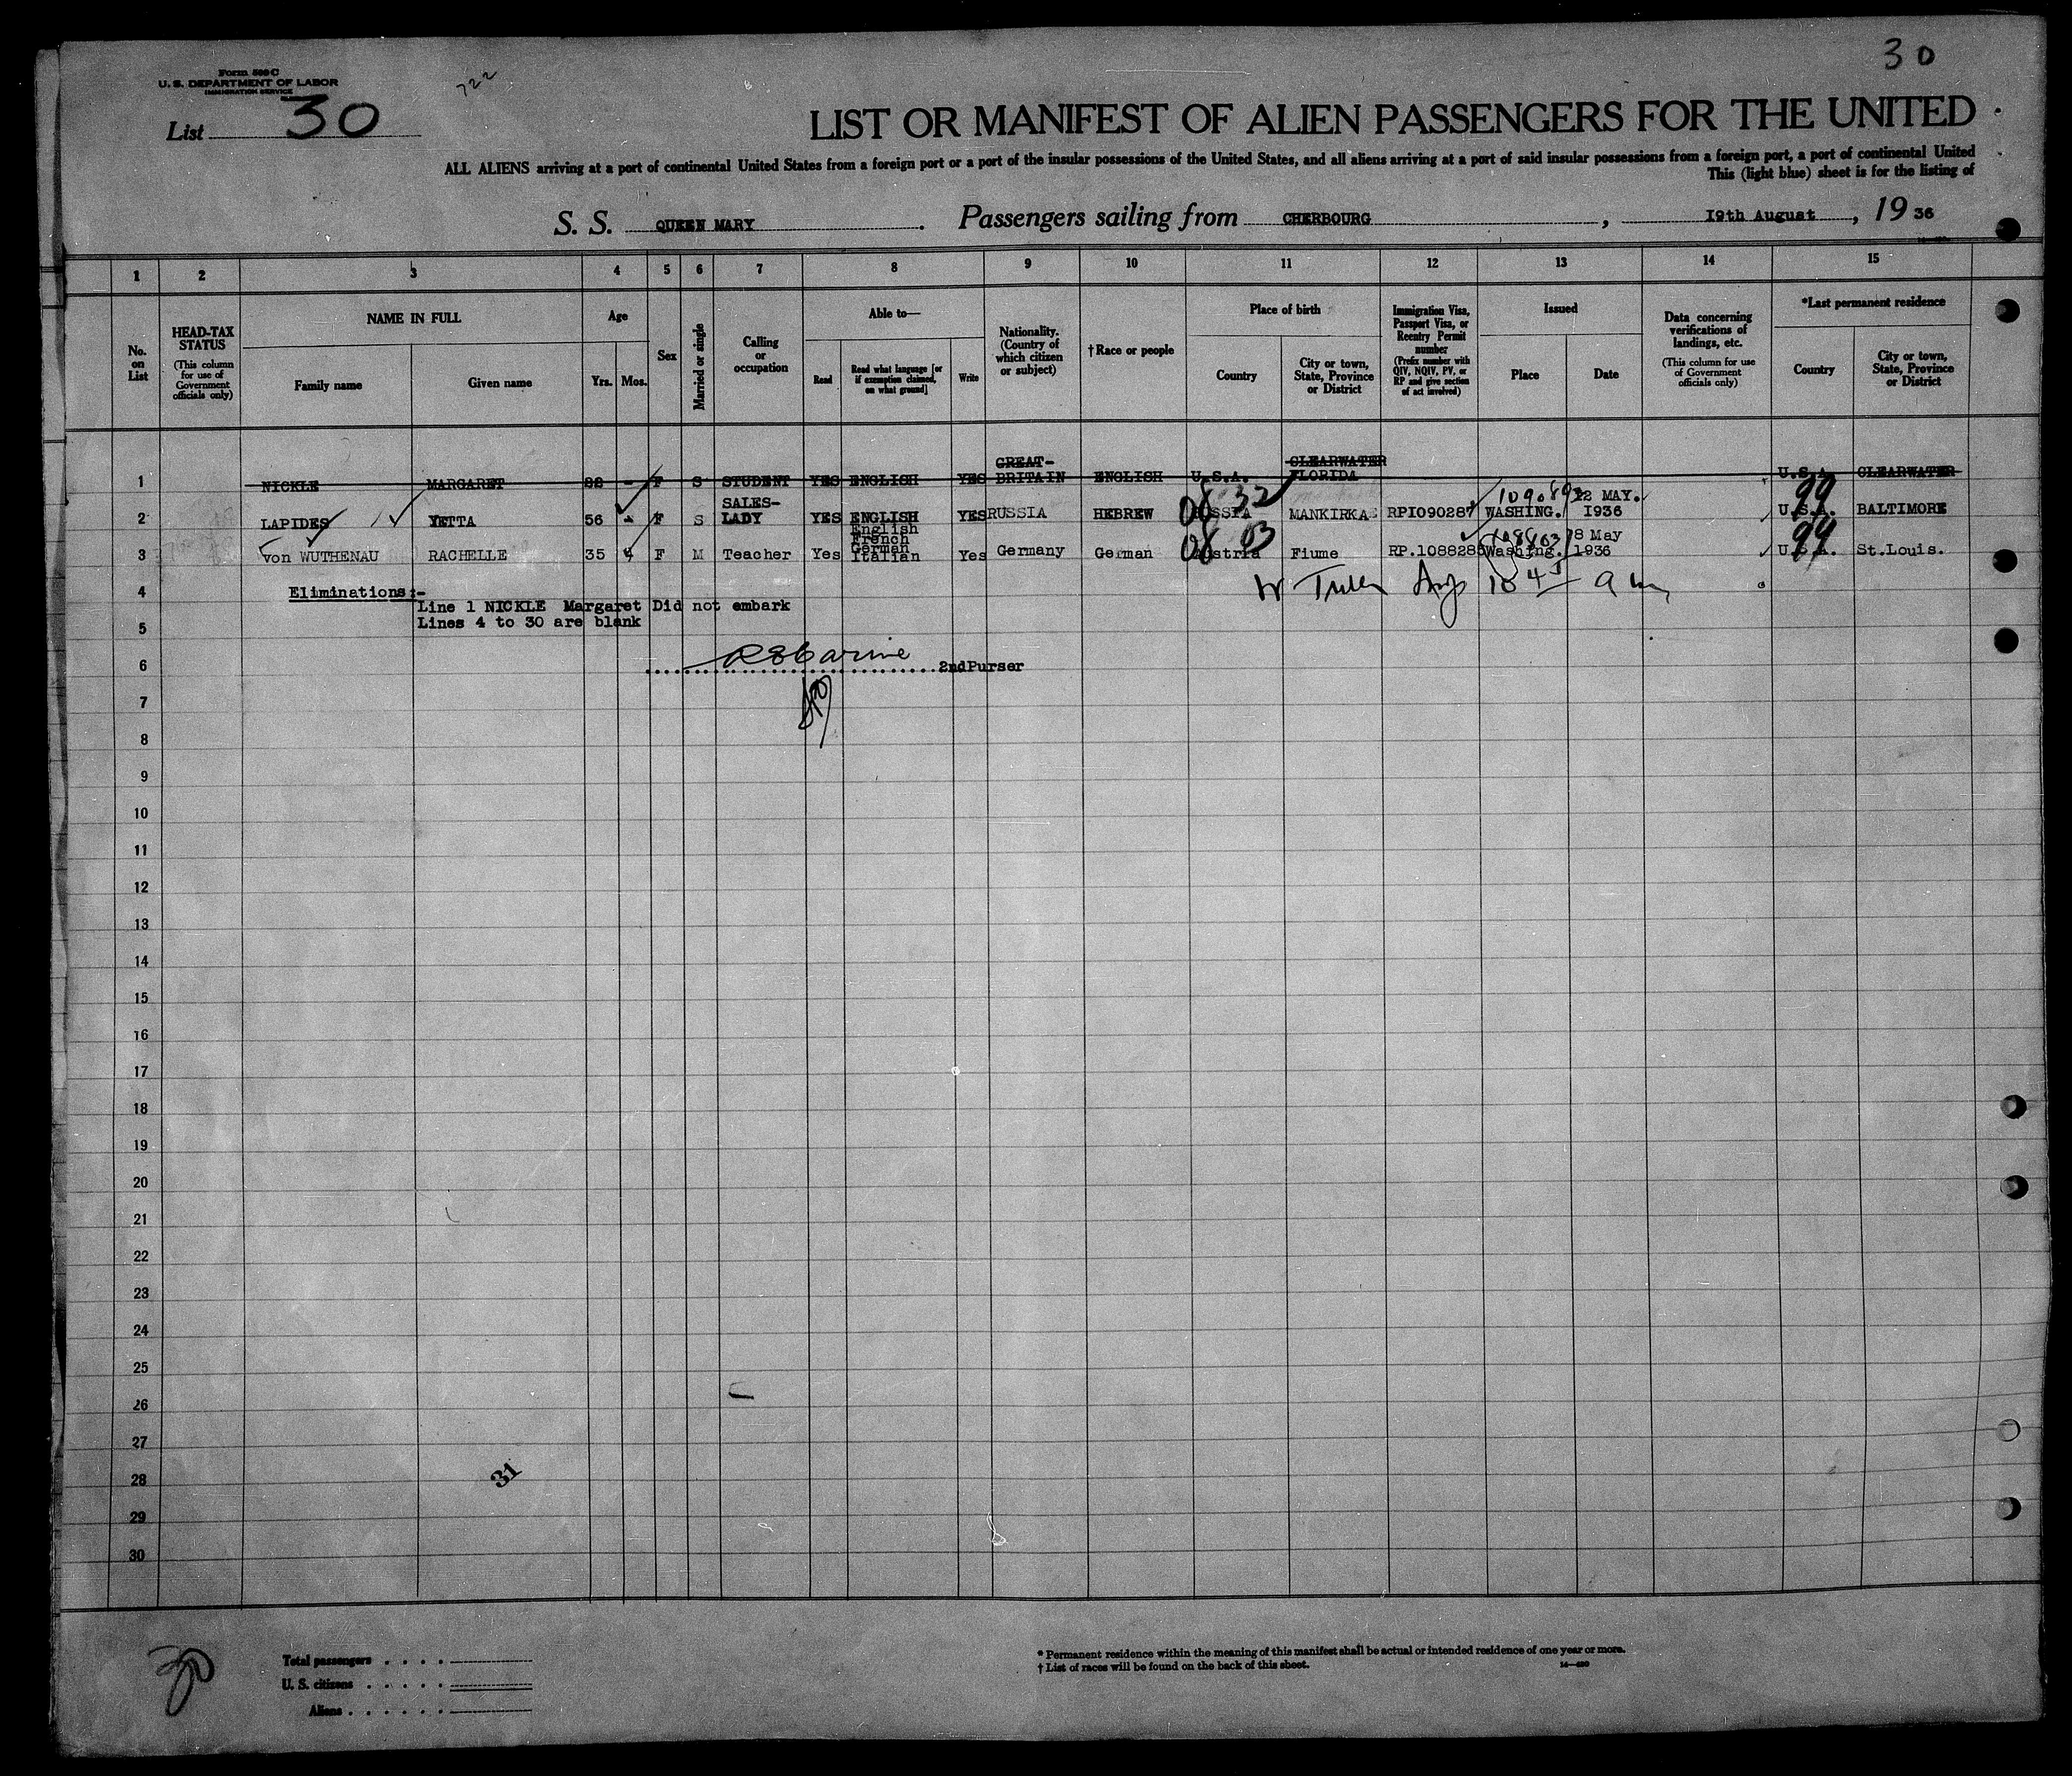 30
Form 500 C
U. S. DEPARTMENT OF LABOR
IMMIGRATION SERVICE
722
List 30
LIST OR MANIFEST OF ALIEN PASSENGERS FOR THE UNITED
ALL ALIENS arriving at a port of continental United States from a foreign port or a port of the insular possessions of the United States, and all aliens arriving at a port of said insular possessions from a foreign port, a port of continental United
This (light blue) sheet is for the listing of
S. S. QUEEN MARY. Passengers sailing from CHERBOURG, 19th August, 1936
1 2 3 4 5 6 7 8 9 10 11 12 13 14 15
No. on List
HEAD-TAX STATUS
(This column for use of Government officials only)
NAME IN FULL
Family name
Given name
Age
Yrs. Mos.
Sex
Married or single
Calling or occupation
Able to—
Read
Read what language [or if exemption claimed, on what ground]
Write
Nationality. (Country of which citizen or subject)
†Race or people
Place of birth
Country
City or town, State, Province or District
Immigration Visa, Passport Visa, or Reentry Permit number
(Prefix number with QIV, NQIV, PV, or RP and give section of act involved)
Issued
Place
Date
Data concerning verifications of landings, etc.
(This column for use of Government officials only)
*Last permanent residence
Country
City or town, State, Province or District
1 NICKLE MARGARET - F S STUDENT YES ENGLISH YES GREAT-BRITAIN ENGLISH U.S.A. CLEARWATER FLORIDA U.S.A. CLEARWATER
2 LAPIDES YETTA 56 - F S SALES-LADY YES ENGLISH YES RUSSIA HEBREW RUSSIA 08 32 MANKIRKAS RP1090287 WASHING. MAY. 1936 U.S.A. 99 BALTIMORE
3 von WUTHENAU RACHELLE 35 4 F M Teacher Yes English French German Italian Yes Germany German Austria 08 03 Fiume RP.1088285 Washing. 8 May 1936 U.S.A. 99 St.Louis.
4 Eliminations:-
Line 1 NICKLE Margaret Did not embark
5 Lines 4 to 30 are blank
6 2ndPurser
7
8
9
10
11
12
13
14
15
16
17
18
19
20
21
22
23
24
25
26
27
28
31
29
30
Total passengers . . . .
U. S. citizens . . . . .
Aliens . . . . . .
* Permanent residence within the meaning of this manifest shall be actual or intended residence of one year or more.
† List of races will be found on the back of this sheet.